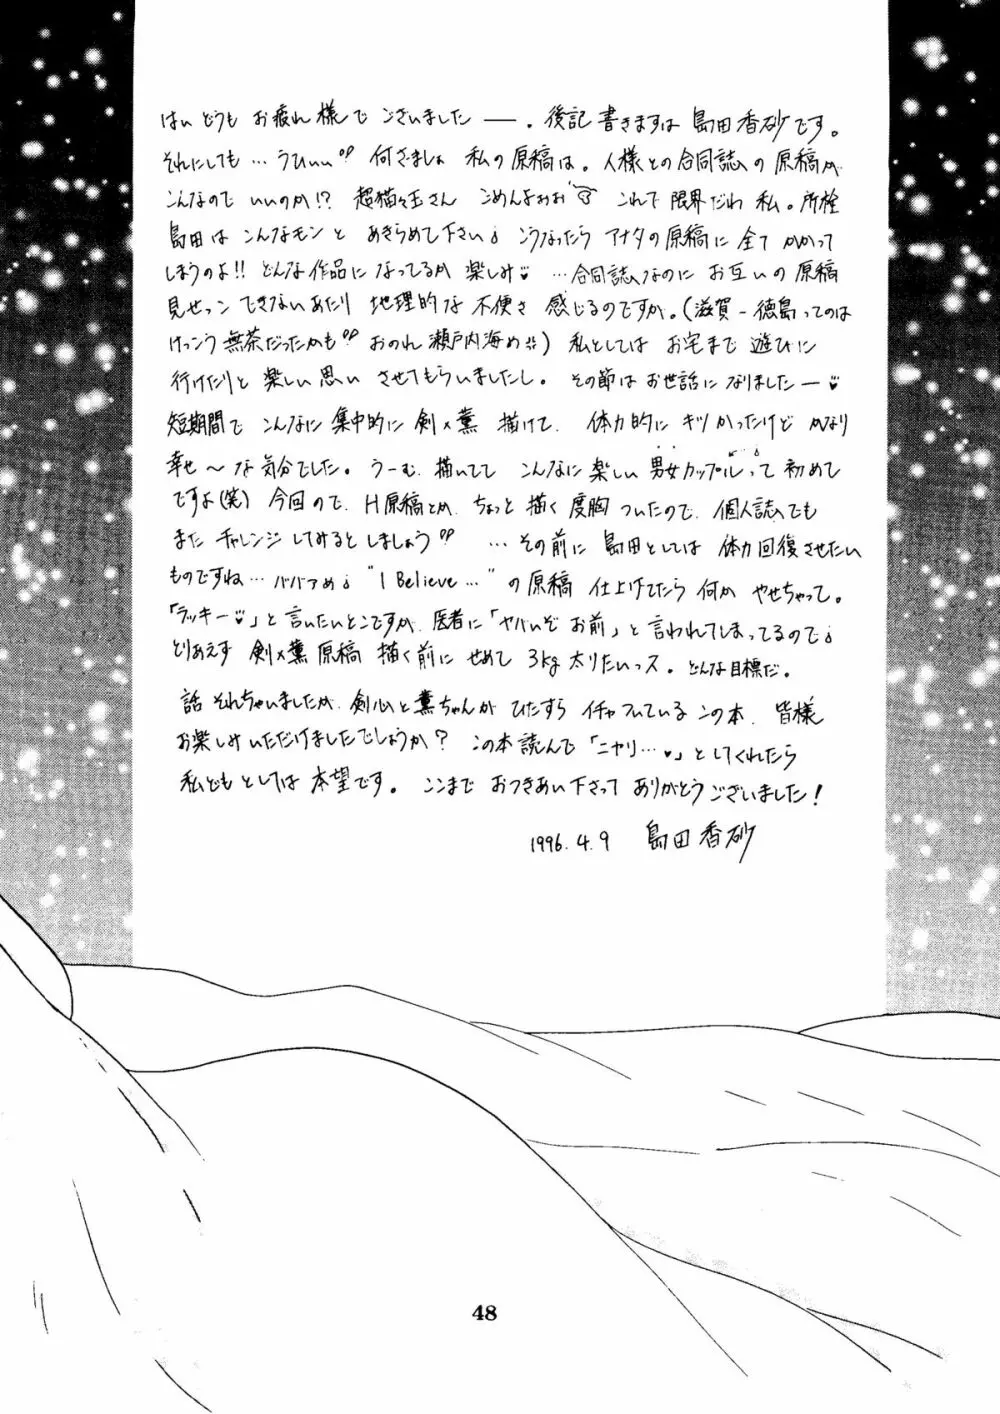 はい どうも お疲れ様で ございました ——。後記 書きますは 島田香砂です。
それにしても… うひぃぃ 何さましょ 私の原稿は。人様との合同誌の原稿が
こんなので いいのか!? 超猫々玉さん ごめんよぉぉ これで 限界だわ 私。所栓
島田は こんなモンと あきらめて下さい♩ こうなったら アナタの原稿に 全て かかって
しまうのよ!! どんな作品に なってるか 楽しみ♥ …合同誌なのに お互いの 原稿
見せっこ できないあたり 地理的な 不便さ 感じるのですが。(滋賀－徳島ってのは
けっこう 無茶だったかも おのれ 瀬戸内海め) 私としては お宅まで 遊びに
行けたりと 楽しい思い させてもらいましたし。その節は お世話に なりましたー♥
短期間で こんなに 集中的に 剣×薫 描けて、体力的に キツかったけど かなり
幸せ〜な気分でした。うーむ、描いてて こんなに 楽しい 男女カップルって 初めて
ですよ(笑) 今回ので、H原稿とか、ちょっと 描く 度胸 ついたので、個人誌でも
また チャレンジ してみると しましょう …その前に 島田としては 体力回復させたい
ものですね… ババァめ♩ “I Believe…” の原稿 仕上げてたら 何か やせちゃって。
「ラッキー♥」と 言いたいとこですが、医者に 「ヤバいぞ お前」と 言われてしまってるので♩
とりあえず 剣×薫 原稿 描く前に せめて 3kg 太りたいっス。どんな目標だ。
話 それちゃいましたが、剣心と 薫ちゃんが ひたすら イチャついている この本、皆様
お楽しみいただけましたでしょうか? この本読んで 「ニヤリ…♥」と してくれたら
私どもとしては 本望です。ここまで おつきあい下さって ありがとうございました!
1996.4.9 島田香砂
48